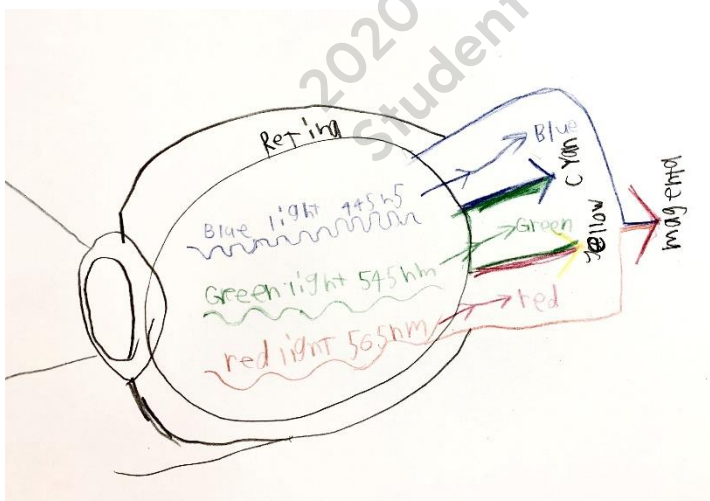 2020
Student
Retina
Blue light 445n5
Green light 545nm
red light 565nm
Blue
Cyan
Green
red